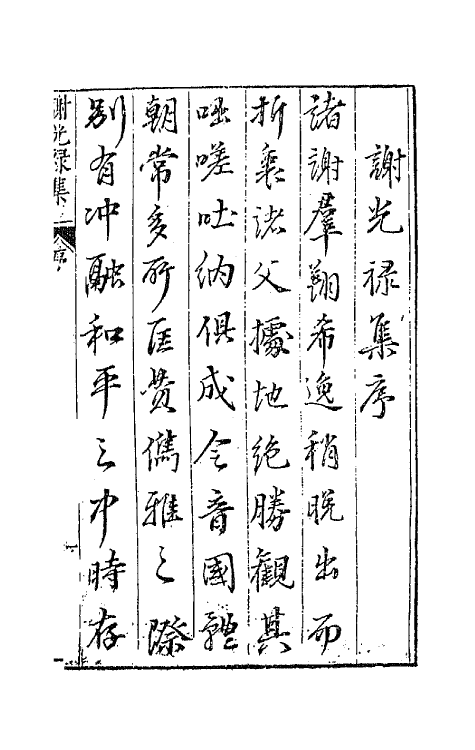 謝光祿集序
諸謝羣翔希逸稍晚出而
折衷諸父據地絕勝觀其
咄嗟吐納俱成令音國體
朝常多所匡贊儁雅之際
別有沖融和平之中時存
謝光祿集 序